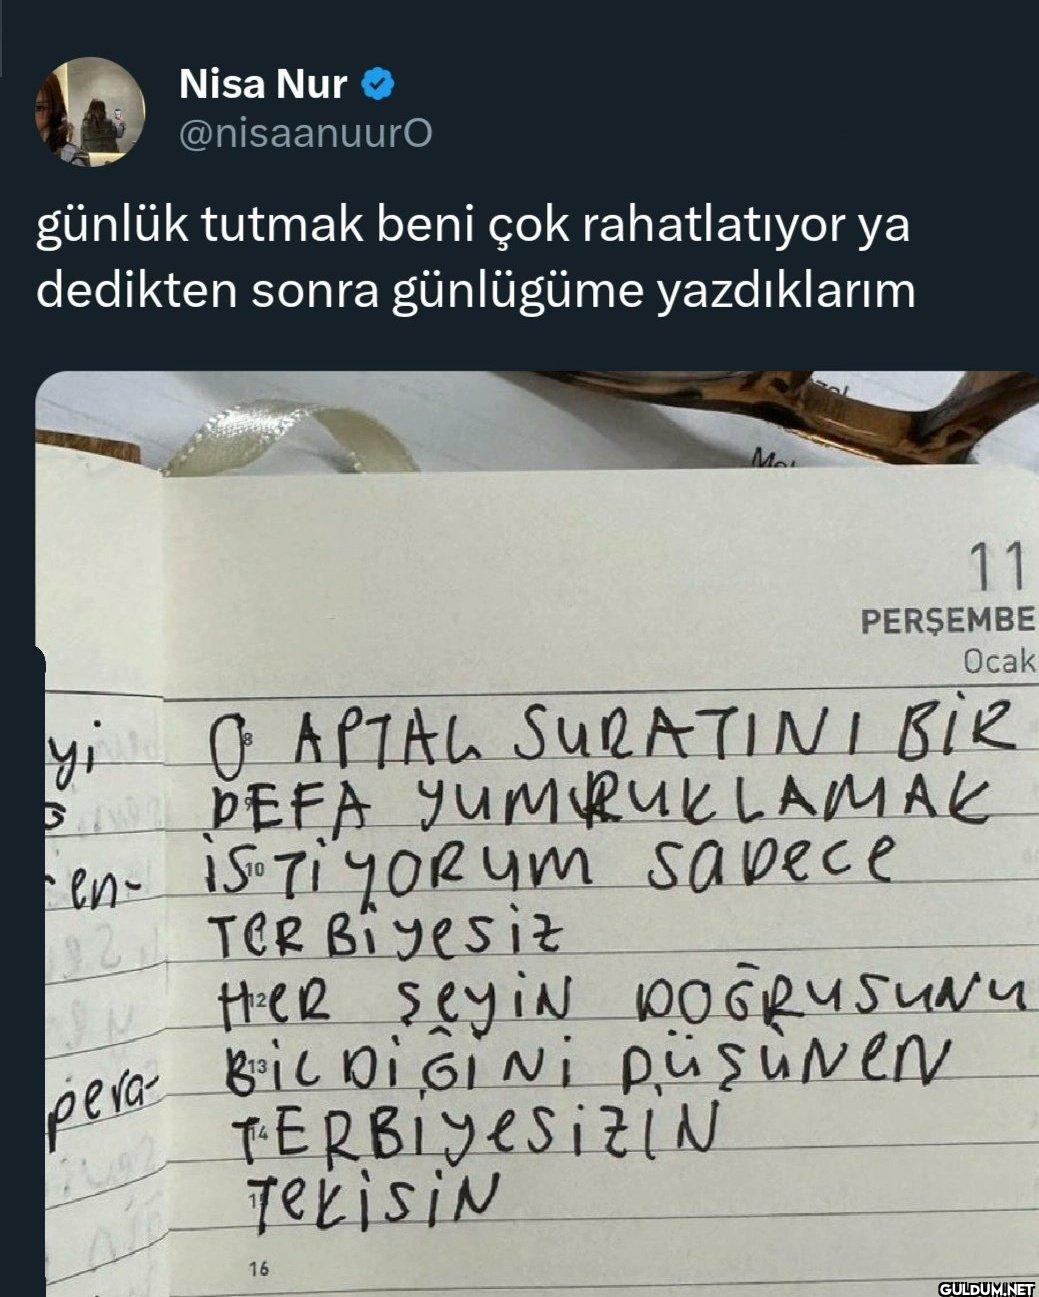 Nisa Nur
@nisaanuurO
günlük tutmak beni çok rahatlatıyor ya
dedikten sonra günlügüme yazdıklarım
11
PERŞEMBE
Ocak
yi
s
en-
pera-
O APTAL SURATINI BİR
8
DEFA YUMRUKLAMAK
İSTİYORUM SADECE
10
TERBİYESİZ
HER ŞEYİN DOĞRUSUNU
12
BİLDİĞİNİ DÜŞÜNEN
13
TERBİYESİZİN
14
TEKİSİN
16
GULDUM.NET